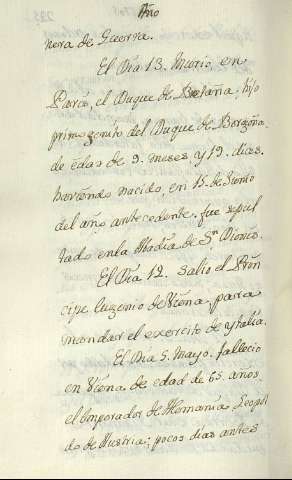 Año
nera de Guerra.
El Dia 13. Murio, en
Paris, el Duque de Bretaña, hijo
primogenito del Duque de Borgoña.
de edad de 9. meses y 19. dias.
haviendo nacido, en 15. de Junio
del año antecedente. fue sepul
tado en la Abadia de Sn. Dionis.
El Dia 12. salio el Prin
cipe Eugenio de Viena, para
mandar el exercito de Ytalia.
El Dia 5. Mayo. fallecio
en Viena de edad de 65 años,
el Emperador de Alemania Leopol
do de Austria; pocos dias antes